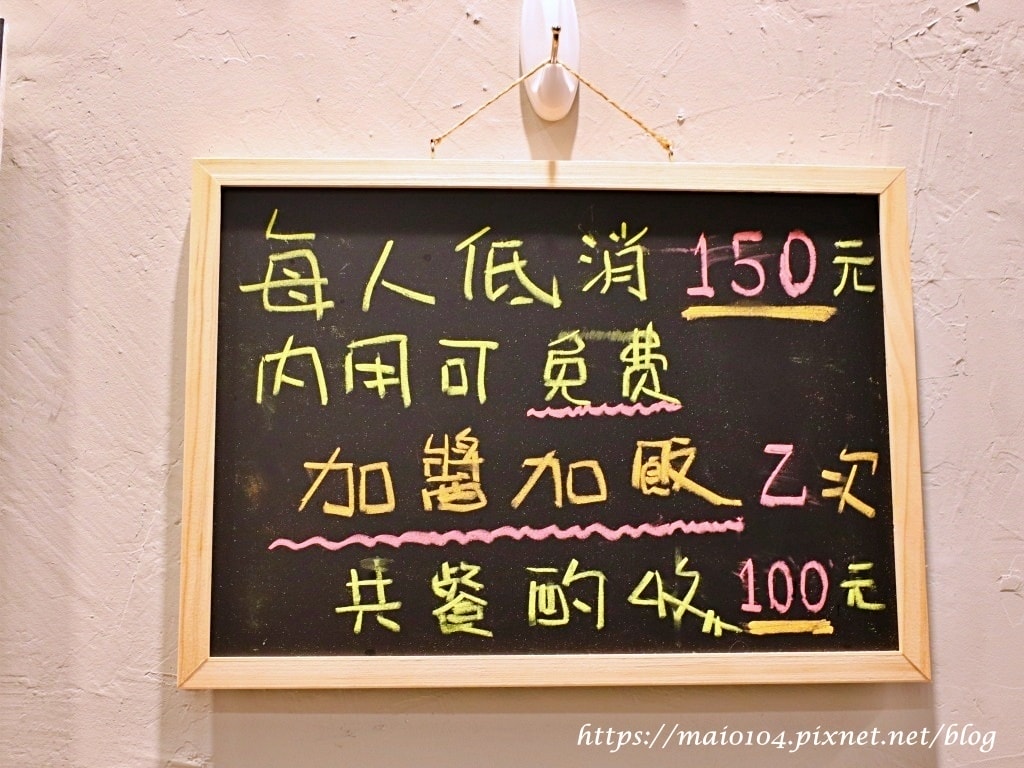 每人低消150元
內用可免費
加醬加飯乙次
共餐酌收100元
https://mai0104.pixnet.net/blog